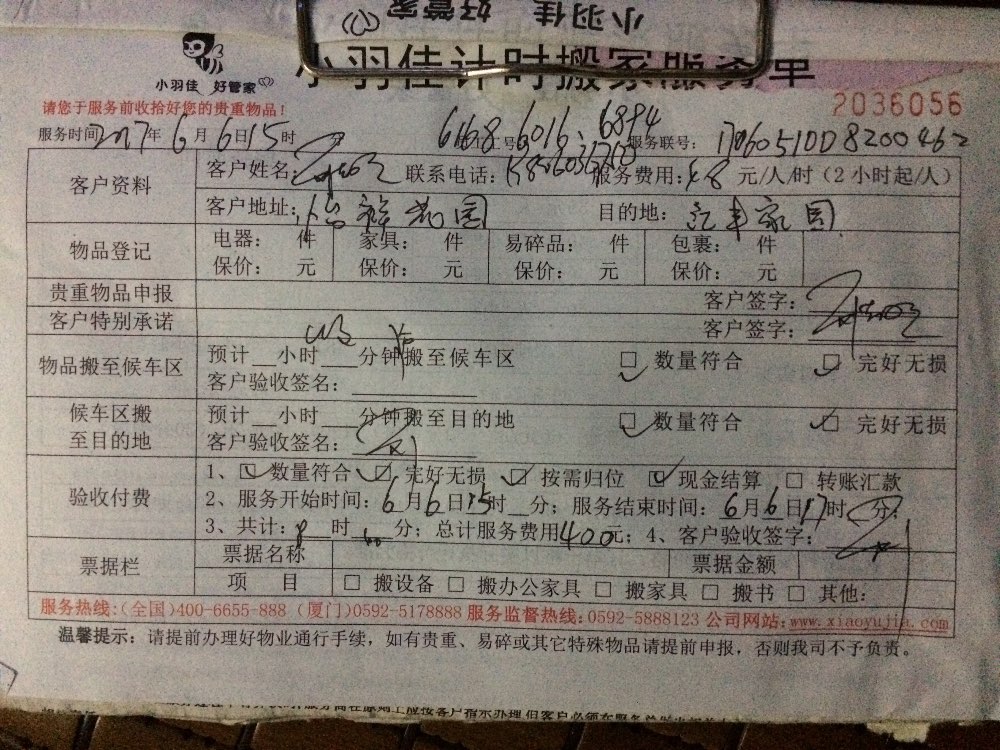 小羽佳 好管家
小羽佳 好管家
小羽佳计时搬家服务单
请您于服务前收拾好您的贵重物品！
2036056
服务时间2017年6月6日15时 6168 工号 6016、6894 服务联号：
客户资料 客户姓名： 联系电话： 服务费用：48元/人/时（2小时起/人）
客户地址：怡祥花园 目的地：家园
物品登记 电器： 件 家具： 件 易碎品： 件 包裹： 件
保价： 元 保价： 元 保价： 元 保价： 元
贵重物品申报 客户签字：
客户特别承诺 客户签字：
物品搬至候车区 预计__小时___分钟搬至候车区 □ 数量符合 □ 完好无损
客户验收签名：
候车区搬至目的地 预计__小时___分钟搬至目的地 □ 数量符合 □ 完好无损
客户验收签名：
验收付费 1、□数量符合 □完好无损 □ 按需归位 □ 现金结算 □ 转账汇款
2、服务开始时间：6月6日15时__分；服务结束时间：6月6日17时__分；
3、共计：8时 分；总计服务费用400元；4、客户验收签字：
票据栏 票据名称 票据金额
项 目 □ 搬设备 □ 搬办公家具 □ 搬家具 □ 搬书 □ 其他：
服务热线：(全国)400-6655-888 (厦门)0592-5178888 服务监督热线：0592-5888123 公司网站：www.xiaoyujia.com
温馨提示：请提前办理好物业通行手续，如有贵重、易碎或其它特殊物品请提前申报，否则我司不予负责。